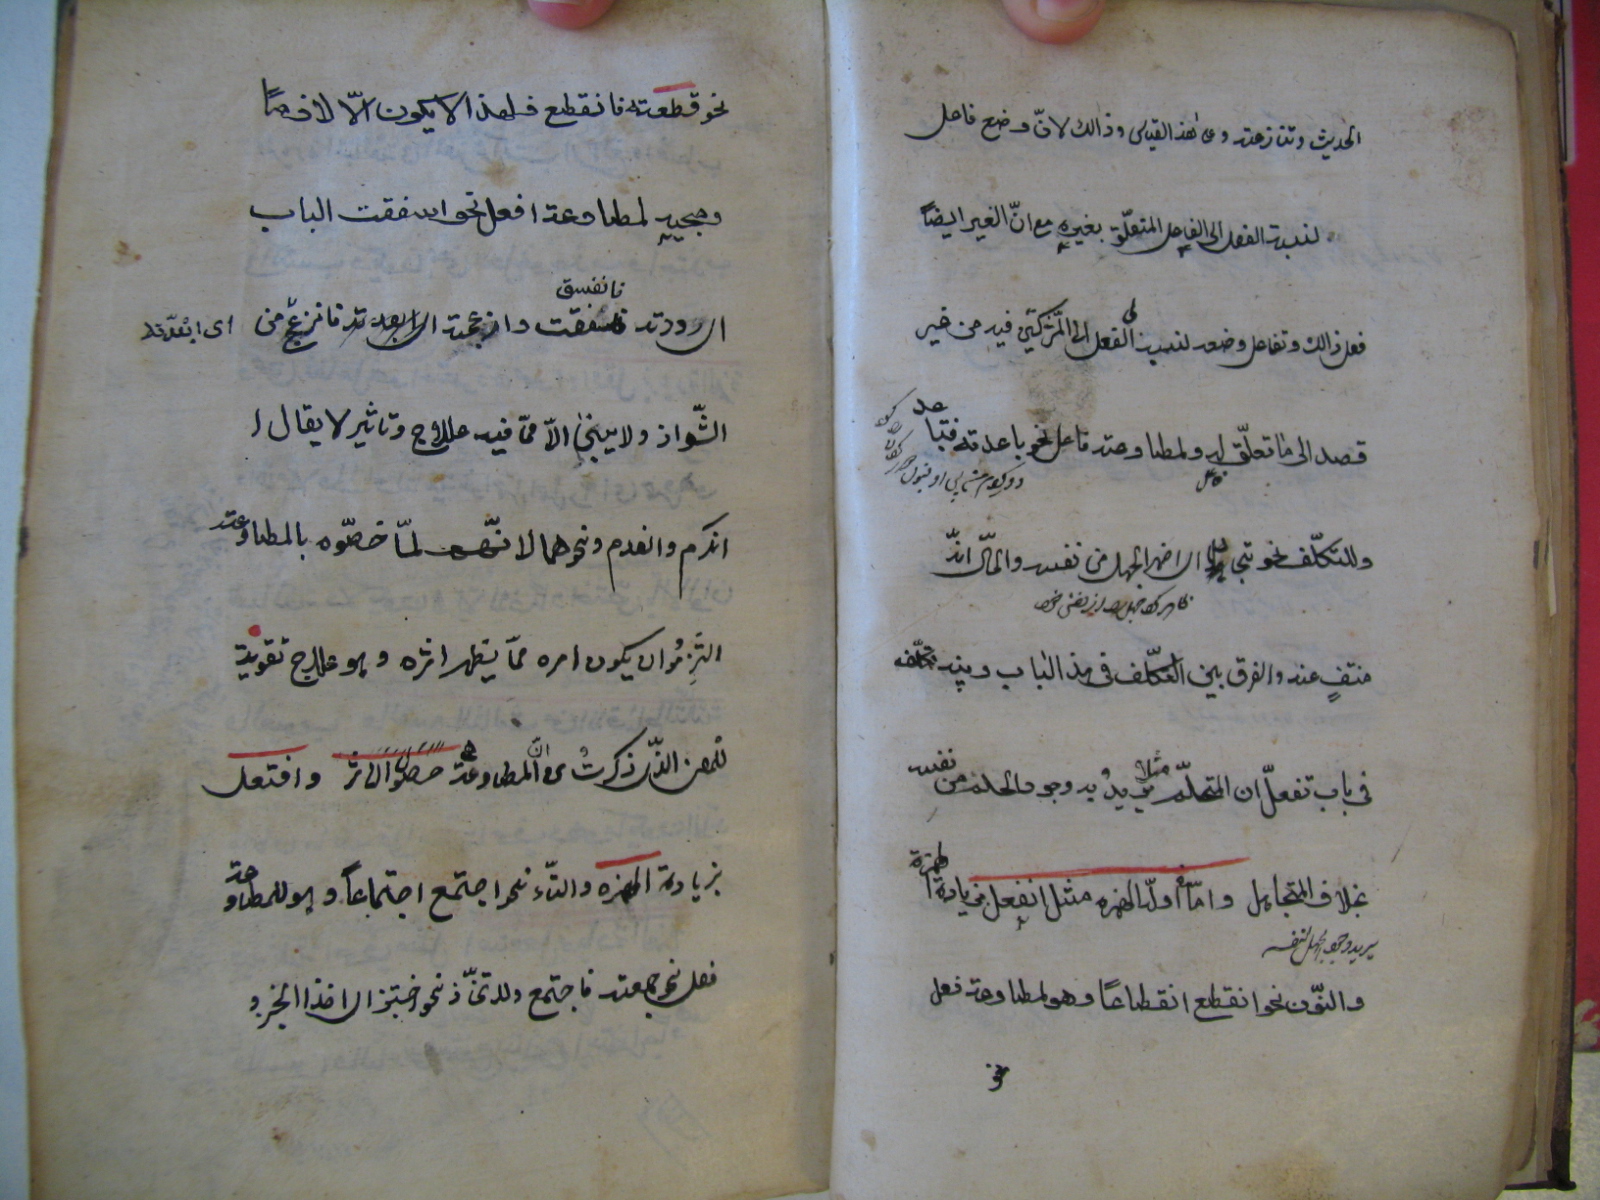 الحديث وتنازعته وعلى هذا القياس وذالك لانّ وضع فاعل
لنسبة الفعل الى الفاعل المتعلّق بغيره مع انّ الغير ايضاً
فعل ذالك وتفاعل وضعه لنسبة الفعل الى المشتركين فيه من غير
قصد الى ما تعلّق به ولمطاوعته فاعل نحو باعدته فتباعد
فاعل
وللتكلّف نحو تجاهل اى اظهر الجهل من نفسه والحال انّه
ظاهر كرد جهل را از نفس خود
منتفٍ عنه والفرق بين التكلّف فى هذا الباب وبينه
فى باب تفعّل ان المتحلّم مثلا يريد به وجود الحلم من نفسه
بخلاف المتجاهل وامّا اولّه الهمزه مثل انفعل بزيادة الهمزة
يريد وجود الجهل لنفسه
والنّون نحو انقطع انقطاعا وهو لمطاوعته فعل
نحو
نحو قطعته فانقطع فلهذا لا يكون الّا لازماً
ومجيئه لمطاوعته افعل نحو اسفقت الباب
فانفسق
اى رددته وازعجته اى ابعدته فانزعج من
اى ابعدته
الشّواذ ولا يبنى الّا ممّا فيه علاج وتاثير لا يقال ا
نكرم وانعدم ونحوهما لانّهم لمّا خصّوه بالمطاوعته
التزموا ان يكون امره ممّا يظهر اثره وهو علاج تقوية
للمعنى الذّى ذكرت من انّ المطاوعة هى حصول الاثر وافتعل
بزيادة الهمزه والتّاء نحو اجتمع اجتماعاً وهو للمطاوعة
فعل نحو جمعته فاجتمع وللاتّخاذ نحو اختبز اى اخذ الخبز و